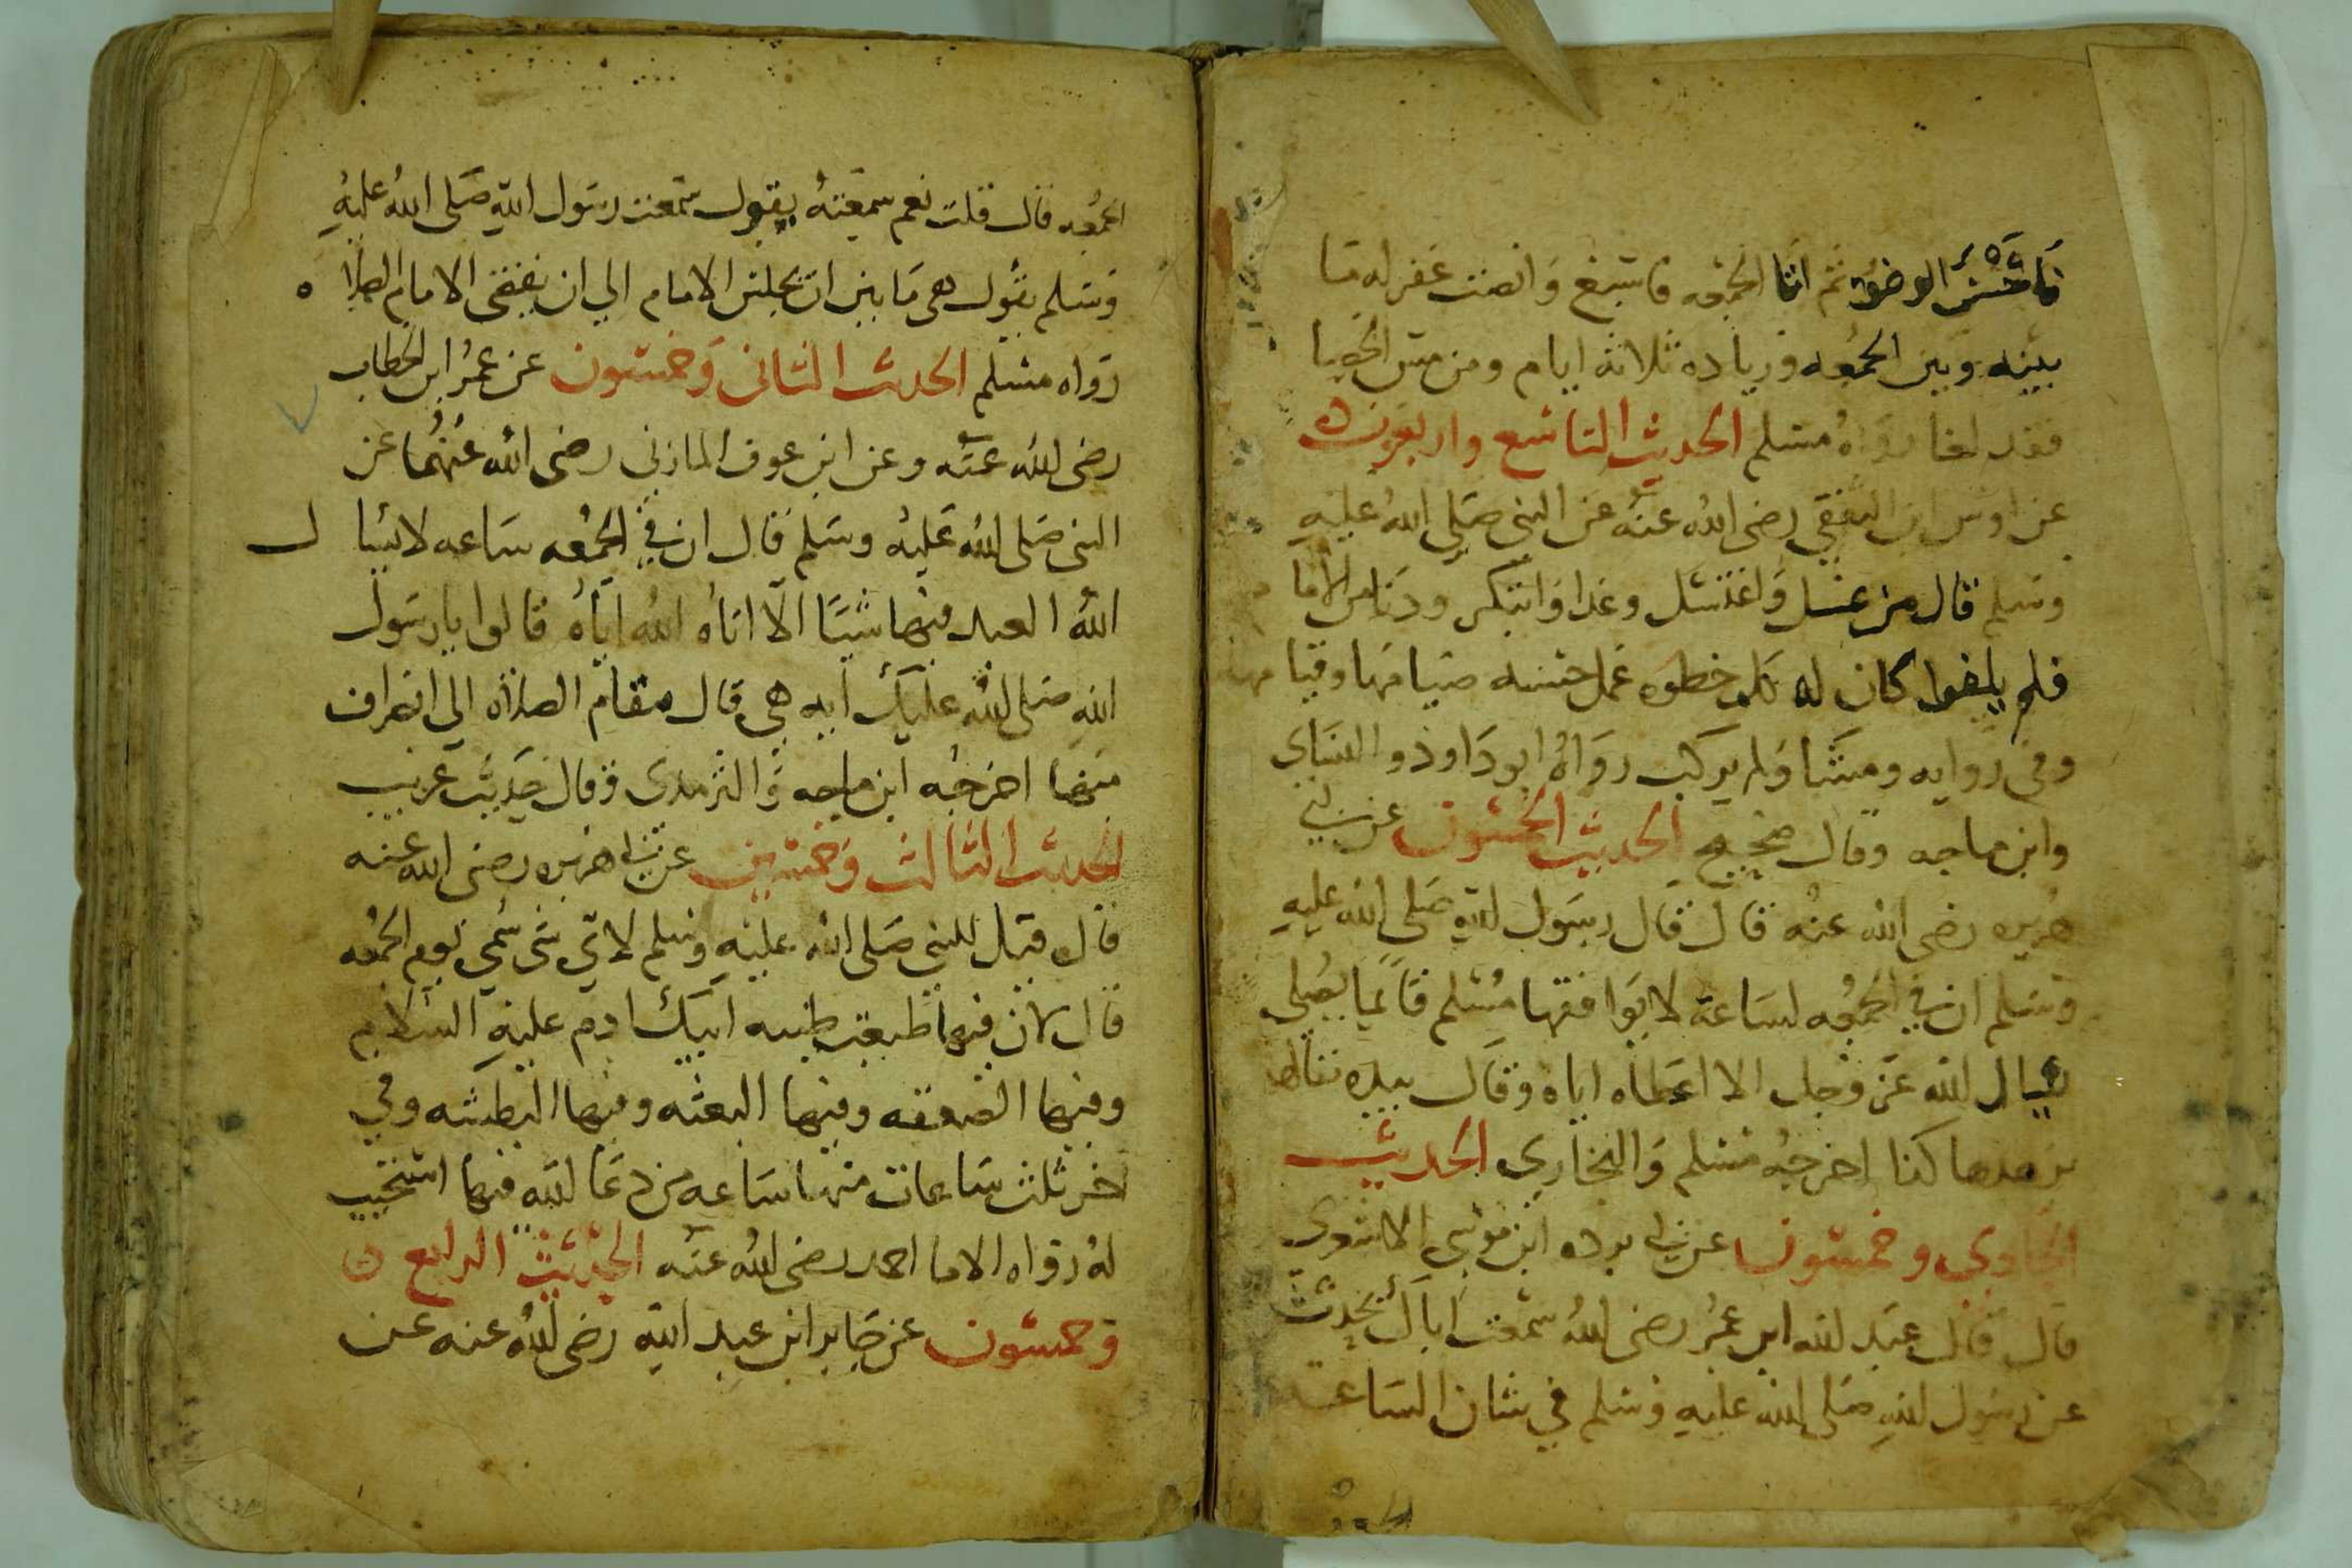 فاحسن الوضوء ثم اتا الجمعه فاستمع وانصت غفر له ما
بينه وبين الجمعه وزياده ثلاثة ايام ومن مس الحصا
فقد لغا رواه مسلم الحديث التاسع واربعون
عن اوس ابن الثقفي رضى الله عنه عن النبى صلى الله عليه
وسلم قال من غسل واغتسل وغدا وابتكر ودنا من الاما م
فلم يلغوا كان له بكل خطوه عمل حسنه صيامها وقيا مها
وفى روايه ومشا ولم يركب رواه ابو داوذ والنساى
وابن ماجه وقال صحيح الحديث الخمسون عن ابى
هريره رضى الله عنه قال قال رسول الله صلى الله عليه
وسلم ان في الجمعه لساعة لا يوافقها مسلم قائما يصلى
يسال الله عز وجل الا اعطاه اياه وقال بيده يقللها
يزهدها كذا اخرجه مسلم والبخارى الحديث
الحاوى وخمسون عن ابى برده ابن موسى الاشعرى
قال قال عبد الله ابن عمر رضى الله سمعت اباك يحدث
عن رسول الله صلى الله عليه وسلم في شان الساعة
الجمعه قال قلت نعم سمعته يقول سمعت رسول الله صلى الله عليه
وسلم يقول هى ما بين ان يجلس الامام الي ان يقضى الامام الصلاة
رواه مسلم الحديث الثانى وخمسون عن عمر ابن الخطاب
رضى الله عنه وعن ابن عوف المازنى رضى الله عنهما عن
النبى صلى الله عليه وسلم قال ان في الجمعه ساعه لا يسا ل
الله العبد فيها شيئا الا اتاه الله اياه قالوا يا رسول
الله صلى الله عليك ايه هي قال مقام الصلاة الى انصراف
منها اخرجه ابن ماجه والترمدى وقال حديث غريب
الحديث الثالث وخمسين عن ابى هريره رضى الله عنه
قال قيل للنبي صلى الله عليه وسلم لاي شى سمي يوم الجمعه
قال لان فيها طبعت طينه ابيك ادم عليه السلام
وفيها الصعقه وفيها البعثه وفيها البطشه وفي
اخر ثلث ساعات منها ساعه من دعا الله فيها استجيب
له رواه الاما احمد رضى الله عنه الحديث الرابع
وخمسون عن جابر ابن عبد الله رضى الله عنه عن